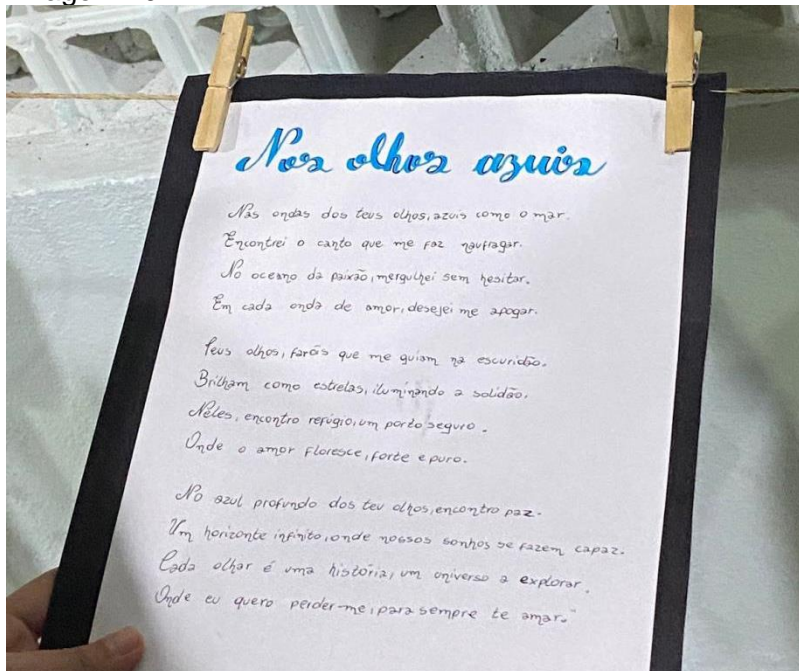 Nos olhos azuis
Nas ondas dos teus olhos, azuis como o mar.
Encontrei o canto que me faz naufragar.
No oceano da paixão, mergulhei sem hesitar.
Em cada onda de amor, desejei me apogar.
Teus olhos, faróis que me guiam na escuridão.
Brilham como estrelas, iluminando a solidão.
Neles, encontro refúgio, um porto seguro.
Onde o amor floresce, forte e puro.
No azul profundo dos teu olhos, encontro paz.
Um horizonte infinito, onde nossos sonhos se fazem capaz.
Cada olhar é uma história, um universo a explorar.
Onde eu quero perder-me, para sempre te amar."